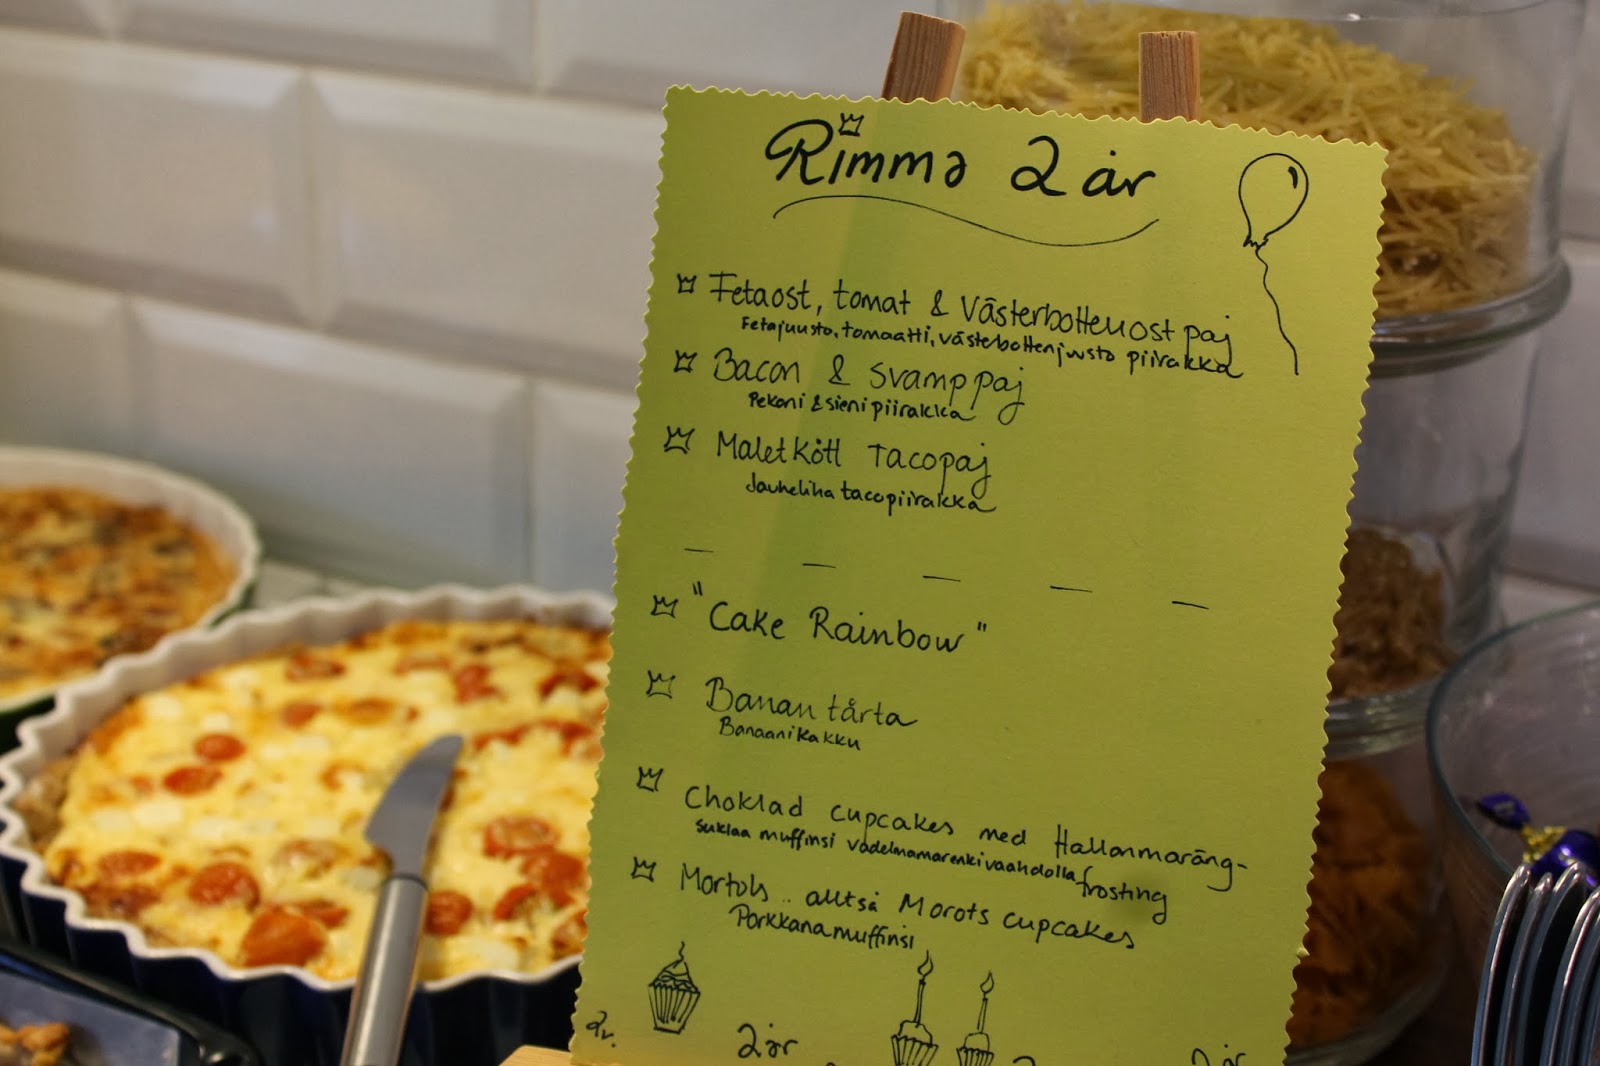 Rimma 2 år
Fetaost, tomat & Västerbottenost paj
Fetajuusto, tomaatti, västerbottenjuusto piirakka
Bacon & svamppaj
Pekoni & sienipiirakka
Malet kött Tacopaj
Jauheliha tacopiirakka
"Cake Rainbow"
Banan tårta
Banaanikakku
Choklad cupcakes med Hallonmaräng-
Suklaa muffinsi vadelmamarenkivaahdolla
frosting
Mortols .. alltså Morots cupcakes
Porkkanamuffinsi
2 år